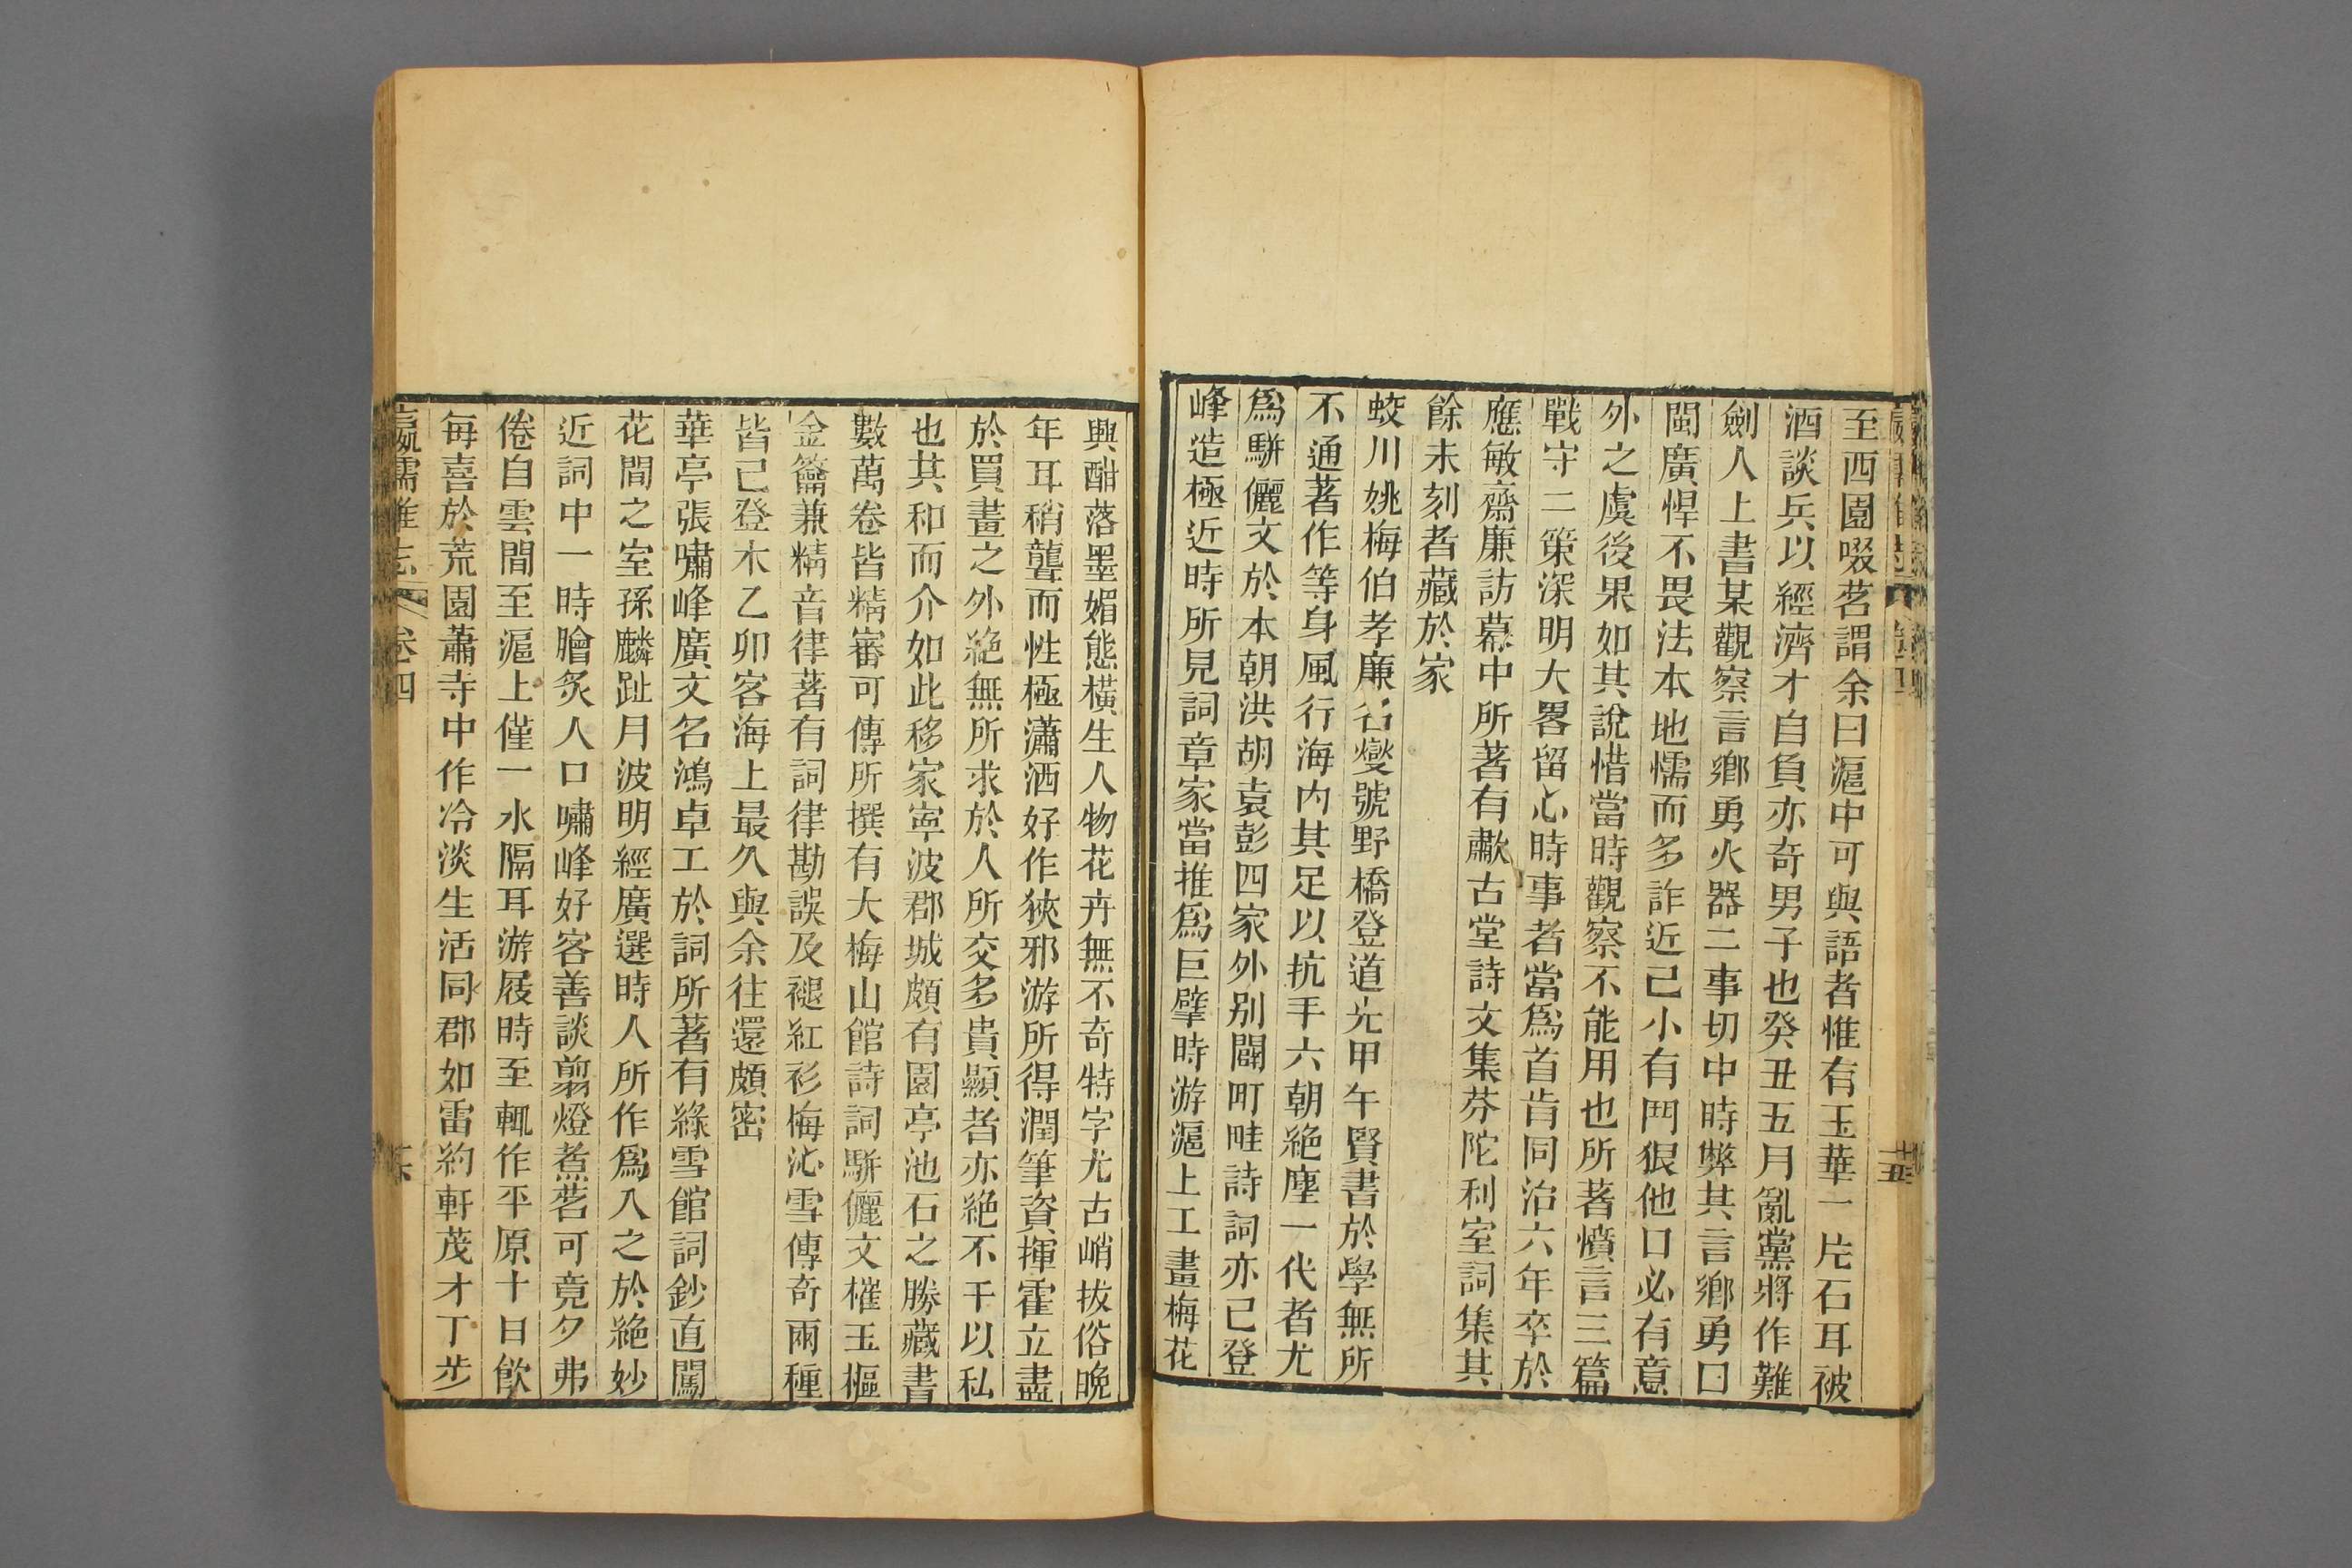 至西園啜茗謂余曰滬中可與語者惟有玉華一片石耳被
酒談兵以經濟才自負亦奇男子也癸丑五月亂黨將作難
劍人上書某觀察言鄉勇火器二事切中時弊其言鄉勇曰
閩廣悍不畏法本地懦而多詐近已小有鬥狠他日必有意
外之虞後果如其說惜當時觀察不能用也所著憤言三篇
戰守二策深明大畧留心時事者當爲首肯同治六年卒於
應敏齋廉訪幕中所著有歗古堂詩文集芬陀利室詞集其
餘未刻者藏於家
蛟川姚梅伯孝廉名燮號野橋登道光甲午賢書於學無所
不通著作等身風行海內其足以抗手六朝絶塵一代者尤
爲駢儷文於本朝洪胡袁彭四家外别闢町畦詩詞亦已登
峰造極近時所見詞章家當推爲巨擘時游滬上工畫梅花
興酣落墨媚態橫生人物花卉無不奇特字尤古峭拔俗晚
年耳稍聾而性極瀟洒好作狹邪游所得潤筆資揮霍立盡
於買畫之外絶無所求於人所交多貴顯者亦絶不干以私
也其和而介如此移家寧波郡城頗有園亭池石之勝藏書
數萬卷皆精審可傳所撰有大梅山館詩詞駢儷文權玉樞
金籥兼精音律著有詞律勘誤及褪紅衫梅沁雪傳奇兩種
皆已登木乙卯客海上最久與余往還頗密
華亭張嘯峰廣文名鴻卓工於詞所著有綠雪館詞鈔直闖
花間之室孫麟趾月波明經廣選時人所作爲人之於絶妙
近詞中一時膾炙人口嘯峰好客善談翦燈煮茗可竟夕弗
倦自雲間至滬上僅一水隔耳游屐時至輒作平原十日飲
每喜於荒園蕭寺中作冷淡生活同郡如雷約軒茂才丁步
瀛壖雜志 卷四